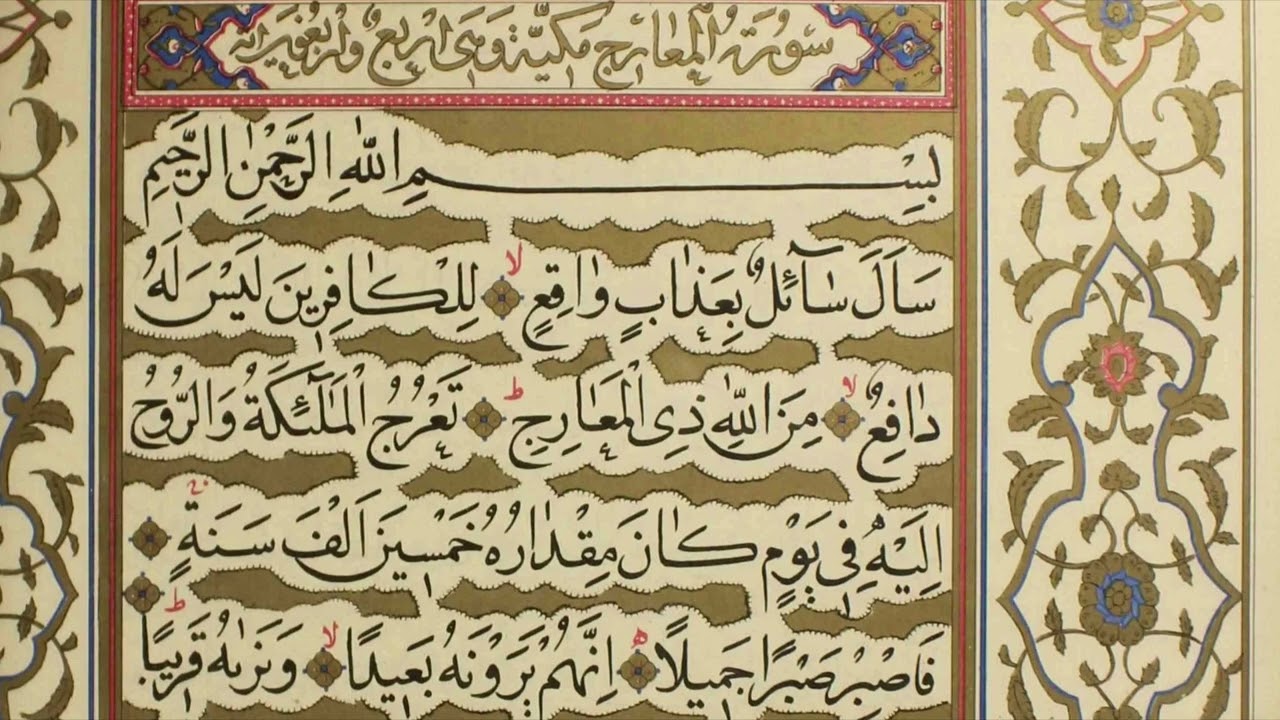 سورة المعارج مكية وهى اربع واربعون اية
بِسْمِ اللّٰهِ الرَّحْمٰنِ الرَّحٖيمِ
سَاَلَ سَٓائِلٌ بِعَذَابٍ وَاقِعٍۙ لِلْكَافِرٖينَ لَيْسَ لَهُ
دَافِعٌۙ مِنَ اللّٰهِ ذِى الْمَعَارِجِۜ تَعْرُجُ الْمَلٰٓئِكَةُ وَالرُّوحُ
اِلَيْهِ فٖى يَوْمٍ كَانَ مِقْدَارُهُ خَمْسٖينَ اَلْفَ سَنَةٍۚ
فَاصْبِرْ صَبْرًا جَمٖيلًا اِنَّهُمْ يَرَوْنَهُ بَعٖيدًاۙ وَنَرٰيهُ قَرٖيبًاۜ